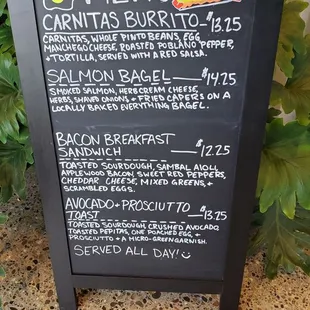 CARNITAS BURRITO $13.25
CARNITAS, WHOLE PINTO BEANS, EGG
MANCHEGO CHEESE, ROASTED POBLANO PEPPER,
+ TORTILLA, SERVED WITH A RED SALSA.
SALMON BAGEL $14.25
SMOKED SALMON, HERB CREAM CHEESE,
HERBS, SHAVED ONIONS + FRIED CAPERS ON A
LOCALLY BAKED EVERYTHING BAGEL.
BACON BREAKFAST
SANDWICH $12.25
TOASTED SOURDOUGH, SAMBAL AIOLI,
APPLEWOOD BACON, SWEET RED PEPPERS,
CHEDDAR CHEESE, MIXED GREENS, +
SCRAMBLED EGGS.
AVOCADO + PROSCIUTTO
TOAST $13.25
TOASTED SOURDOUGH, CRUSHED AVOCADO,
TOASTED PEPITAS, ONE POACHED EGG, +
PROSCIUTTO + A MICRO-GREEN GARNISH.
SERVED ALL DAY!